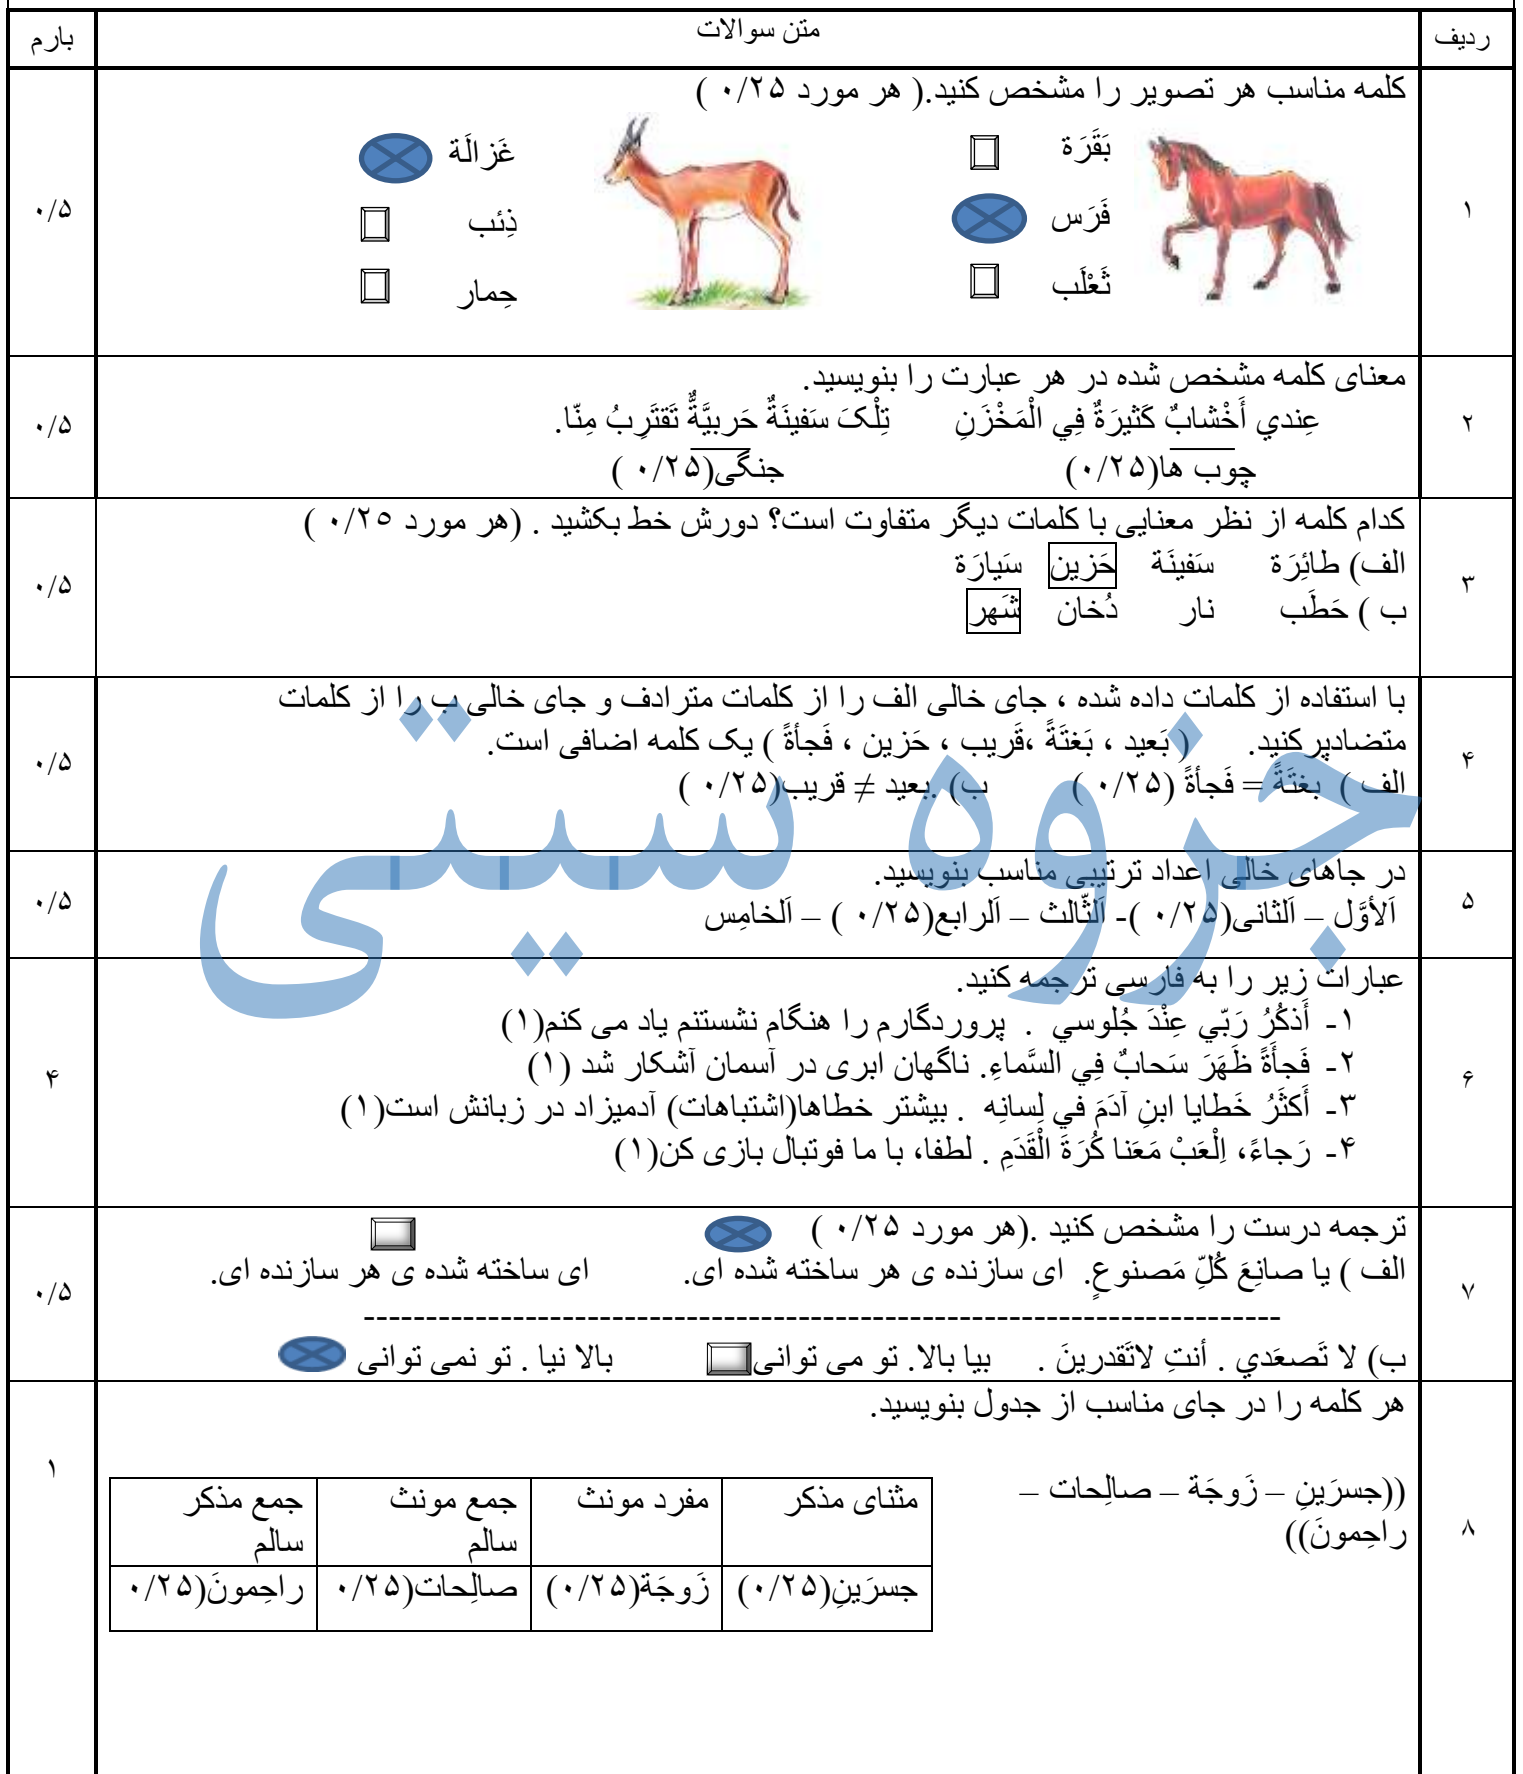 ردیف متن سوالات بارم
۱ کلمه مناسب هر تصویر را مشخص کنید.( هر مورد ۰/۲۵ ) ۰/۵
بَقَرَة غَزالَة
فَرَس ذِئب
ثَعْلَب حِمار
۲ معنای کلمه مشخص شده در هر عبارت را بنویسید. ۰/۵
عِندي أَخْشابٌ كَثيرَةٌ فِي الْمَخْزَنِ تِلْکَ سَفينَةٌ حَربيَّةٌ تَقتَرِبُ مِنّا.
چوب ها(۰/۲۵) جنگی(۰/۲۵ )
۳ کدام کلمه از نظر معنایی با کلمات دیگر متفاوت است؟ دورش خط بکشید . (هر مورد ۰/۲۵ ) ۰/۵
الف) طائِرَة سَفينَة حَزين سَيارَة
ب ) حَطَب نار دُخان شَهر
۴ با استفاده از کلمات داده شده ، جای خالی الف را از کلمات مترادف و جای خالی ب را از کلمات ۰/۵
متضادپرکنید. ( بَعید ، بَغتَةً ،قَریب ، حَزین ، فَجأةً ) یک کلمه اضافی است.
الف ) بغتَةً = فَجأةً (۰/۲۵ ) ب) .بعید ≠ قریب(۰/۲۵ )
۵ در جاهای خالی اعداد ترتیبی مناسب بنویسید. ۰/۵
اَلأوَّل – اَلثانی(۰/۲۵ )- اَلثّالث – اَلرابع(۰/۲۵ ) – اَلخامِس
۶ عبارات زیر را به فارسی ترجمه کنید. ۴
۱- أَذكُرُ رَبّي عِنْدَ جُلوسي . پروردگارم را هنگام نشستنم یاد می کنم(۱)
۲- فَجأَةً ظَهَرَ سَحابٌ فِي السَّماءِ. ناگهان ابری در آسمان آشکار شد (۱)
۳- أَكثَرُ خَطايا ابنِ آدَمَ في لِسانِه . بیشتر خطاها(اشتباهات) آدمیزاد در زبانش است(۱)
۴- رَجاءً، اِلْعَبْ مَعَنا كُرَةَ الْقَدَمِ . لطفا، با ما فوتبال بازی کن(۱)
۷ ترجمه درست را مشخص کنید .(هر مورد ۰/۲۵ ) ۰/۵
الف ) يا صانِعَ كُلِّ مَصنوعٍ. ای سازنده ی هر ساخته شده ای. ای ساخته شده ی هر سازنده ای.
--------------------------------------------------------------------------
ب) لا تَصعَدي . أنتِ لاتَقدرينَ . بیا بالا. تو می توانی بالا نیا . تو نمی توانی
۸ هر کلمه را در جای مناسب از جدول بنویسید. ۱
((جسرَينِ – زَوجَة – صالِحات –
راحِمونَ))
مثنای مذکر مفرد مونث جمع مونث سالم جمع مذکر سالم
جسرَينِ(۰/۲۵) زَوجَة(۰/۲۵) صالِحات(۰/۲۵ راحِمونَ(۰/۲۵
جزوه سیتی